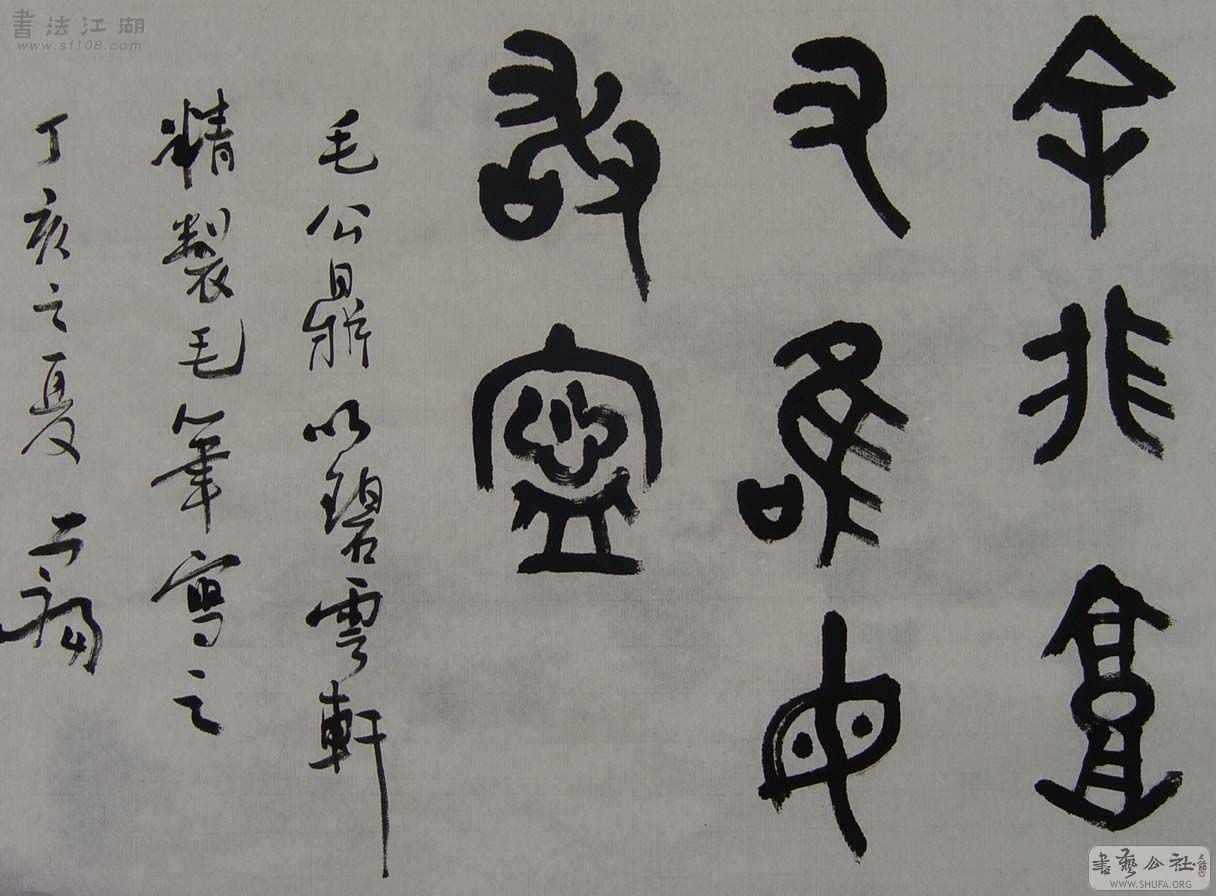 書法江湖
www.sf108.com
余非𩫏
又唯毋
敢寧
毛公鼎以碧雲軒
精製毛筆寫之
丁亥之夏
書藝公社
WWW.SHUFA.ORG